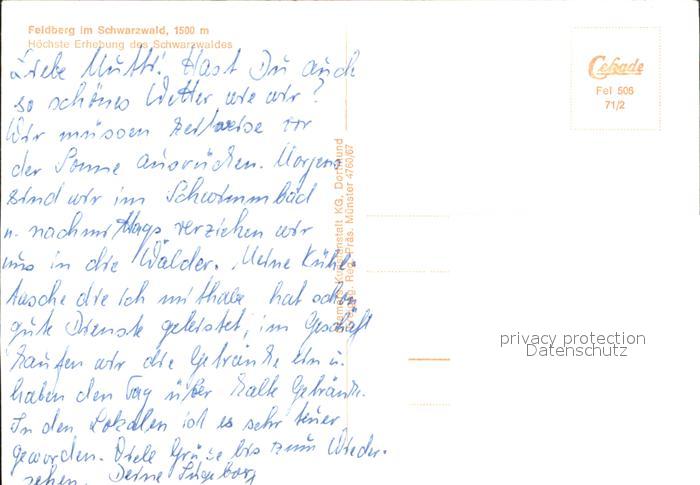 Feldberg im Schwarzwald, 1500 m
Höchste Erhebung des Schwarzwaldes
Liebe Mutti! Hast Du auch
so schönes Wetter wie wir?
Wir müssen zeitweise vor
der Sonne ausrücken. Morgens
sind wir im Schwimmbad
u. nachmittags verziehen wir
uns in die Wälder. Meine Kühl-
tasche die ich mithabe hat schon
gute Dienste geleistet, im Geschäft
kaufen wir die Getränke ein u.
haben den Tag über kalte Getränke.
In den Lokalen ist es sehr teuer
geworden. Viele Grüße bis zum Wieder-
sehen. Deine Ingeborg
Kunstanstalt KG, Dortmund
Reg. Präs. Münster 4760/67
Cekade
Fel 506
71/2
privacy protection
Datenschutz